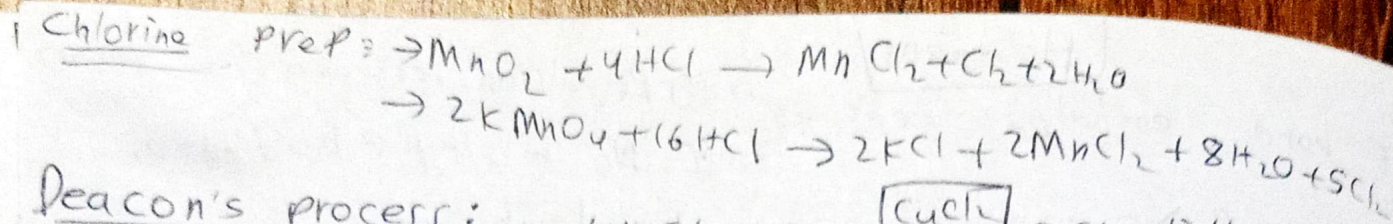 Chlorine prep: → MnO₂ + 4HCl → MnCl₂ + Cl₂ + 2H₂O
→ 2KMnO₄ + 16HCl → 2KCl + 2MnCl₂ + 8H₂O + 5Cl₂
Deacon's process: CuCl₂